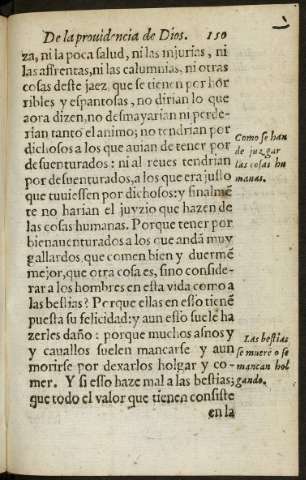 De la prouidencia de Dios. 150
za, ni la poca salud, ni las injurias, ni
las affrentas, ni las calumnias, ni otras
cosas deste jaez, que se tienen por hor
ribles y espantosas, no dirian lo que
aora dizen, no desmayarian ni perde-
rian tanto el animo; no tendrian por
dichosos a los que auian de tener por
desuenturados: ni al reues tendrian
por desuenturados, a los que era justo
que tuuiessen por dichosos: y finalmẽ
te no harian el juyzio que hazen de
las cosas humanas. Porque tener por
bienauenturados a los que andã muy
gallardos, que comen bien y duermẽ
mejor, que otra cosa es, sino conside-
rar a los hombres en esta vida como a
las bestias? Porque ellas en esso tienẽ
puesta su felicidad: y aun esso suele ha
zerles daño: porque muchos asnos y
y cauallos suelen mancarse y aun
morirse por dexarlos holgar y co-
mer. Y si esso haze mal a las bestias;
que todo el valor que tienen consiste
en la
Como se han
de juzgar
las cosas hu
manas.
Las bestias
se muerẽ o se
mancan hol
gando.